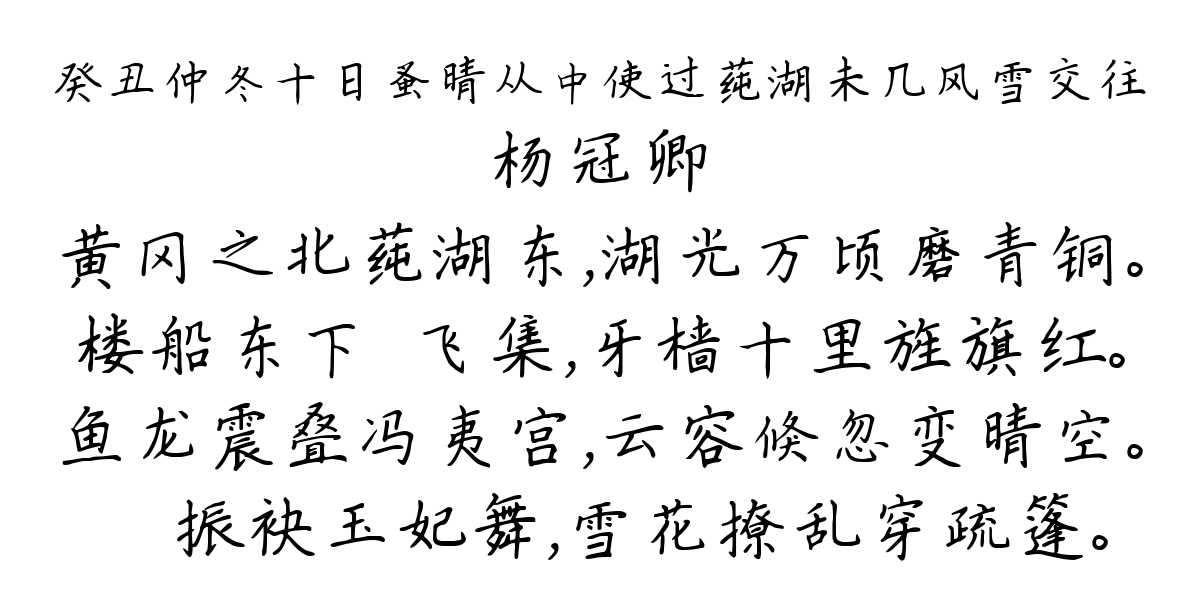 癸丑仲冬十日蚤晴从中使过莼湖未几风雪交往
杨冠卿
黄冈之北莼湖东,湖光万顷磨青铜。
楼船东下 飞集,牙樯十里旌旗红。
鱼龙震叠冯夷宫,云容倏忽变晴空。
振袂玉妃舞,雪花撩乱穿疏篷。